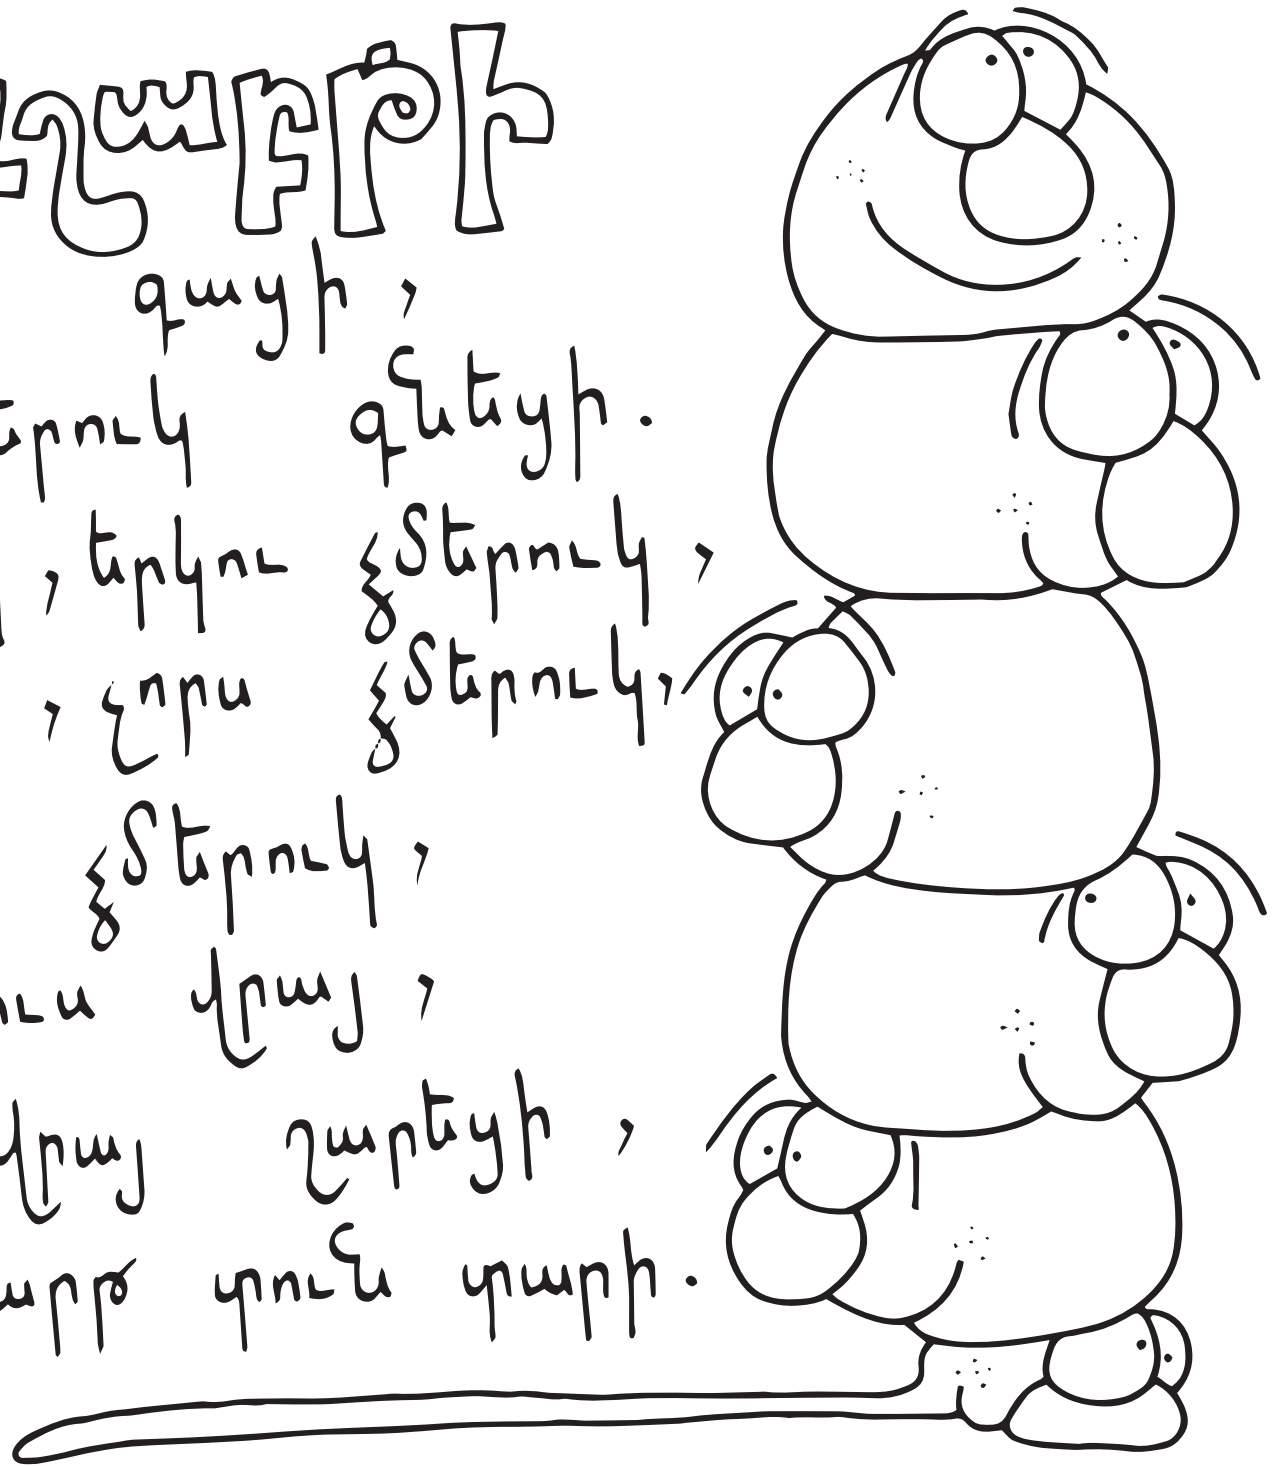 շաբթի
գացի ,
երուկ գնեցի .
, երկու ձմերուկ ,
, չորս ձմերուկ,
ձմերուկ ,
ուս վրայ ,
վրայ շարեցի ,
արթ տուն տարի .